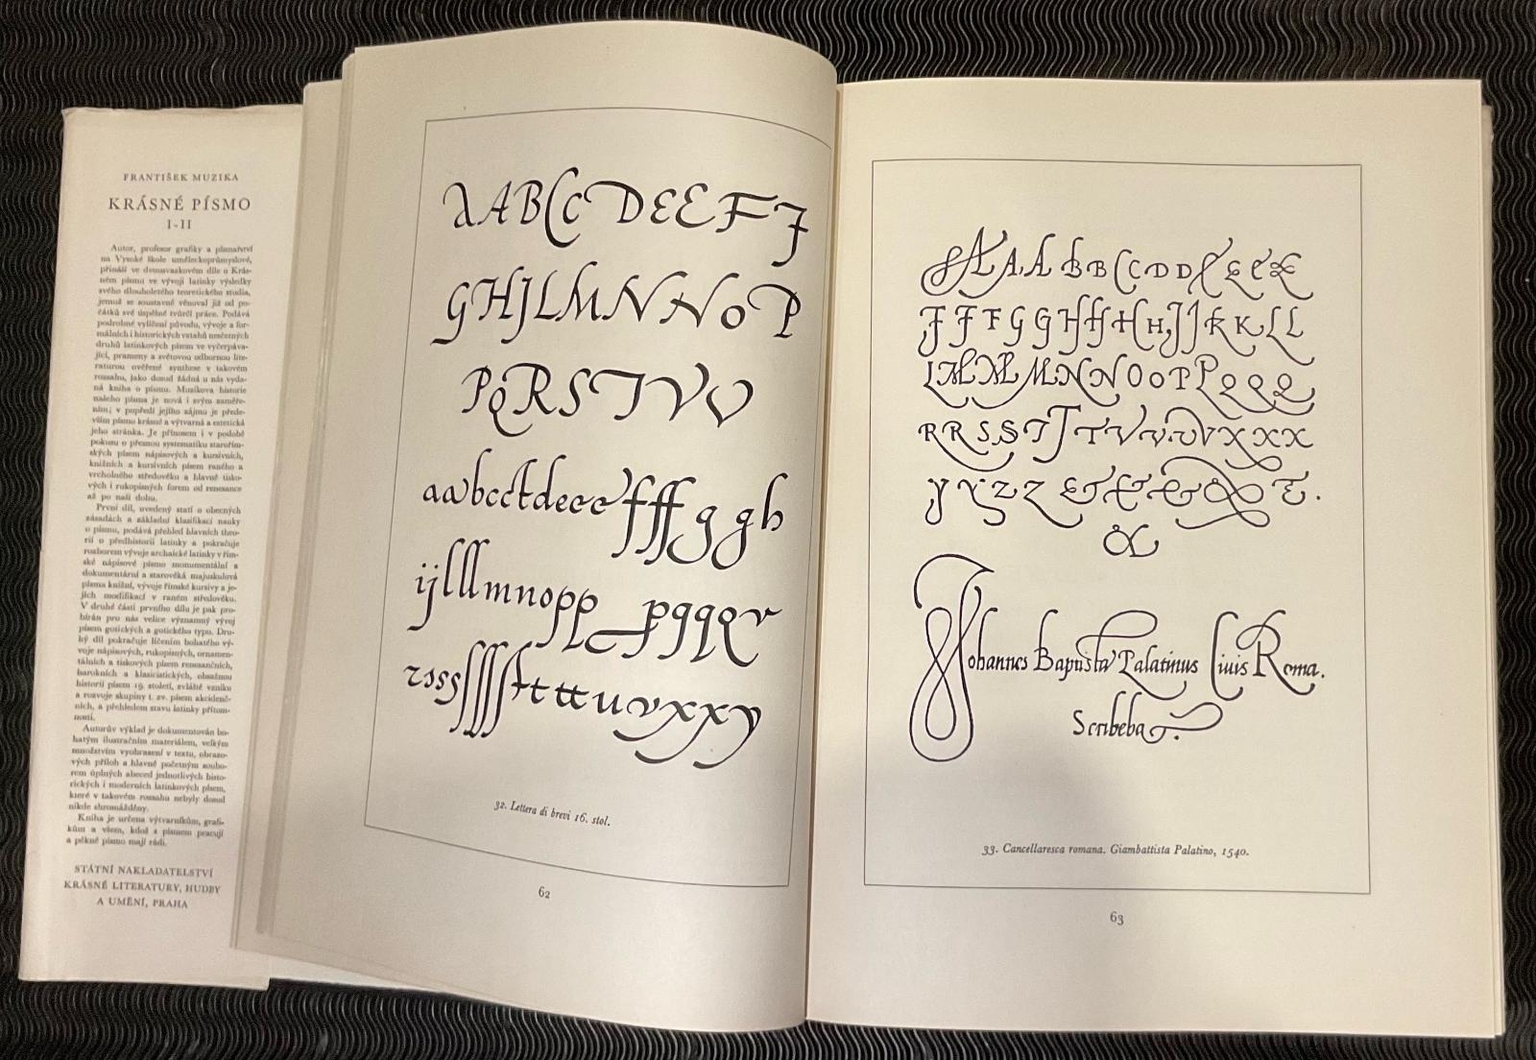 FRANTIŠEK MUZIKA
KRÁSNÉ PÍSMO
I-II
Autor, profesor grafiky a písmařství
na Vysoké škole uměleckoprůmyslové,
přináší ve dvousvazkovém díle o Krás-
ném písmu ve vývoji latinky výsledky
svého dlouholetého teoretického studia,
jemuž se soustavně věnoval již od po-
čátků své úspěšné tvůrčí práce. Podává
podrobné vylíčení původu, vývoje a for-
málních i historických vztahů nesčetných
druhů latinkových písem ve vyčerpáva-
jící, prameny a světovou odbornou lite-
raturou ověřené synthese v takovém
rozsahu, jako dosud žádná u nás vyda-
ná kniha o písmu. Muzikova historie
našeho písma je nová i svým zaměře-
ním; v popředí jejího zájmu je přede-
vším písmo krásné a výtvarná a estetická
jeho stránka. Je přínosem i v podobě
pokusu o přesnou systematiku starořím-
ských písem nápisových a kursivních,
knižních a kursivních písem raného a
vrcholného středověku a hlavně tisko-
vých i rukopisných forem od renesance
až po naši dobu.
První díl, uvedený statí o obecných
zásadách a základní klasifikaci nauky
o písmu, podává přehled hlavních theo-
rií o předhistorii latinky a pokračuje
rozborem vývoje archaické latinky v řím-
ské nápisové písmo monumentální a
dokumentární a starověká majuskulová
písma knižní, vývoje římské kursivy a je-
jích modifikací v raném středověku.
V druhé části prvního dílu je pak pro-
bírán pro nás velice významný vývoj
písem gotických a gotického typu. Dru-
hý díl pokračuje líčením bohatého vý-
voje nápisových, rukopisných, ornamen-
tálních a tiskových písem renesančních,
barokních a klasicistických, obsažnou
historií písem 19. století, zvláště vzniku
a rozvoje skupiny t. zv. písem akcidenč-
ních, a přehledem stavu latinky přítom-
nosti.
Autorův výklad je dokumentován bo-
hatým ilustračním materiálem, velkým
množstvím vyobrazení v textu, obrazo-
vých příloh a hlavně početným soubo-
rem úplných abeced jednotlivých histo-
rických i moderních latinkových písem,
které v takovém rozsahu nebyly dosud
nikde shromážděny.
Kniha je určena výtvarníkům, grafi-
kům a všem, kdož s písmem pracují
a pěkné písmo mají rádi.
STÁTNÍ NAKLADATELSTVÍ
KRÁSNÉ LITERATURY, HUDBY
A UMĚNÍ, PRAHA
AABCCDEEFF
GHJLMNNOP
PQRSTVV
aabcctdeeefffggh
ijlllmnoppp gqqRr
rsssſſſſttttuvxxy
32. Lettera di brevi 16. stol.
62
AAABBCCDDEEEE
FFFGGHHHHJJKKLL
LMMMNNOOPPQQQ
RRSSTTTVVVVXXX
YYZZ&&&&&.
&
Johannes Baptista Palatinus Ciuis Roma.
Scribebat.
33. Cancellaresca romana. Giambattista Palatino, 1540.
63